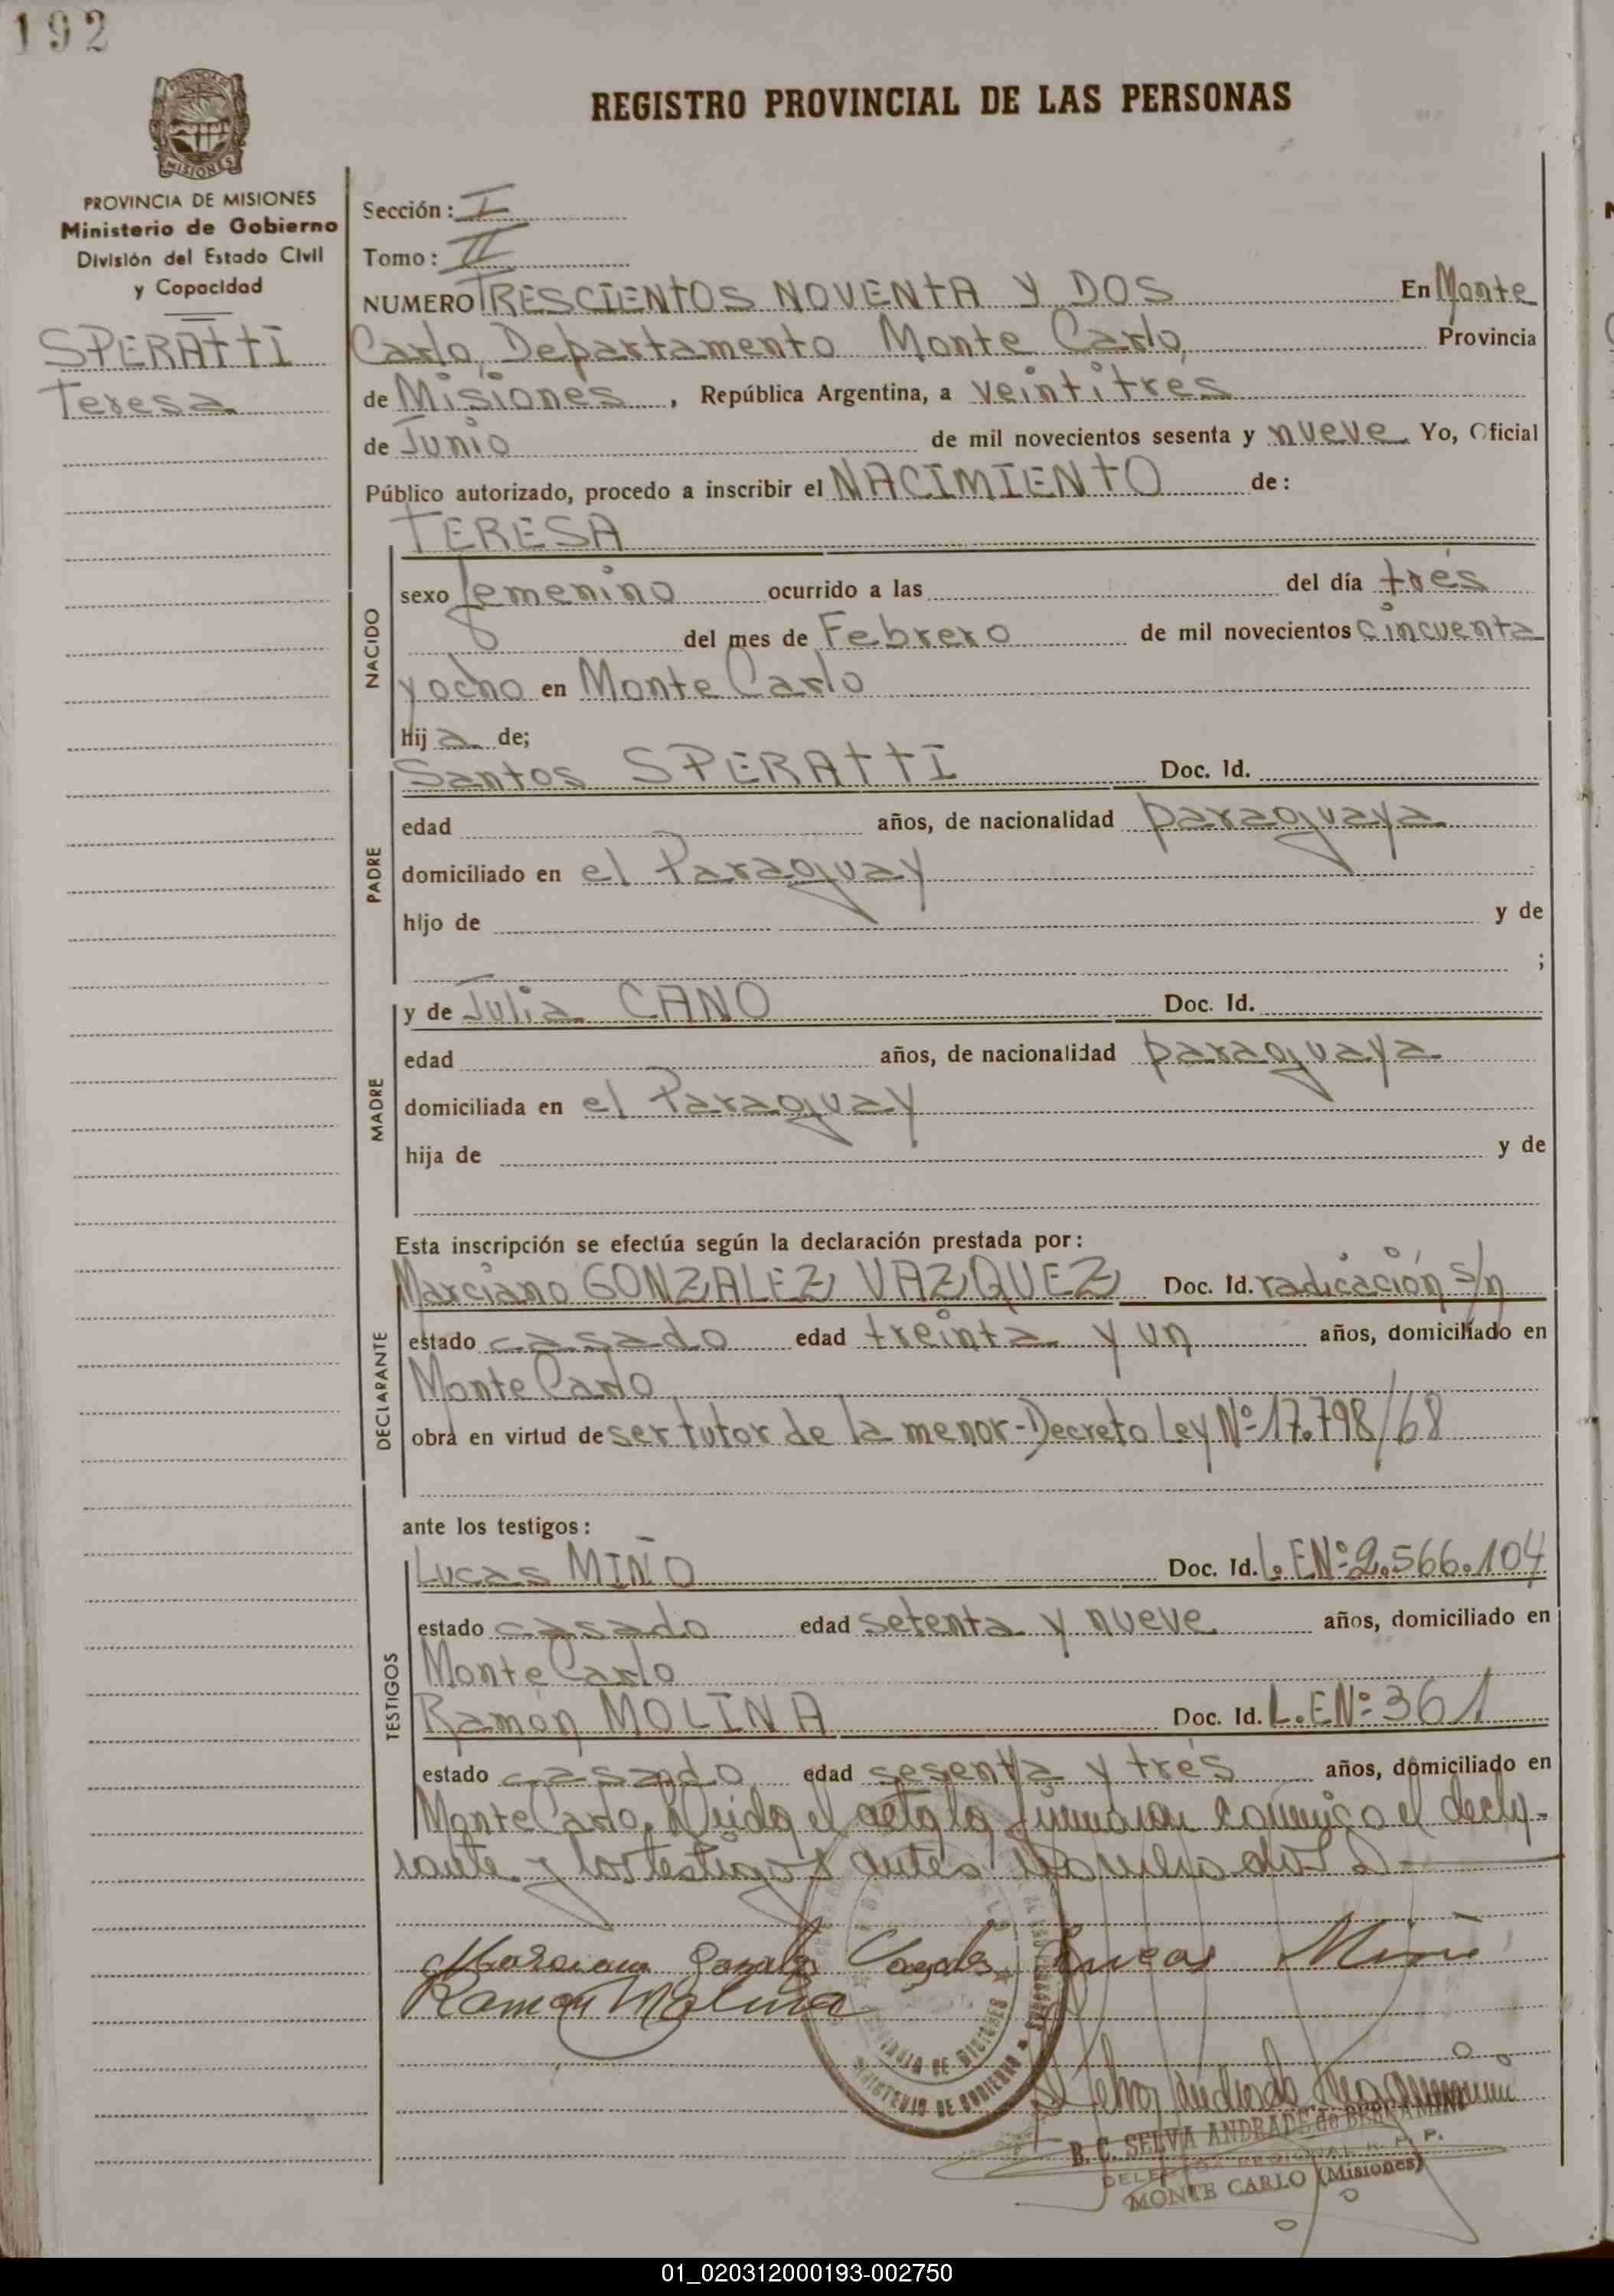 192
REGISTRO PROVINCIAL DE LAS PERSONAS
MISIONES
PROVINCIA DE MISIONES
Ministerio de Gobierno
División del Estado Civil
y Capacidad
SPERATTI
Teresa
Sección: I
Tomo: II
NUMERO TRESCIENTOS NOVENTA Y DOS En Monte
Carlo, Departamento Monte Carlo, Provincia
de Misiones, República Argentina, a veintitrés
de Junio de mil novecientos sesenta y nueve Yo, Oficial
Público autorizado, procedo a inscribir el NACIMIENTO de:
TERESA
NACIDO
sexo femenino ocurrido a las del día trés
del mes de Febrero de mil novecientos cincuenta
y ocho en Monte Carlo
Hij a de;
PADRE
Santos SPERATTI Doc. Id.
edad años, de nacionalidad paraguaya
domiciliado en el Paraguay
hijo de y de
;
MADRE
y de Julia CANO Doc. Id.
edad años, de nacionalidad paraguaya
domiciliada en el Paraguay
hija de y de
Esta inscripción se efectúa según la declaración prestada por:
DECLARANTE
Marciano GONZALEZ VAZQUEZ Doc. Id. radicación s/n
estado casado edad treinta y un años, domiciliado en
Monte Carlo
obra en virtud de ser tutor de la menor-Decreto Ley Nº 17.798/68
ante los testigos:
TESTIGOS
Lucas MIÑO Doc. Id. L.E Nº 2.566.104
estado casado edad setenta y nueve años, domiciliado en
Monte Carlo
Ramón MOLINA Doc. Id. L.E Nº 361
estado casado edad sesenta y trés años, domiciliado en
Monte Carlo. Leida el acta la firman conmigo el decla-
rante y los testigos antes
Marciano Gonzalez Lucas Mino
Ramon Molina
MINISTERIO DE GOBIERNO
B. C. SELVA ANDRADE de BERGAMINI
DELEGADA REGIONAL R. P. P.
MONTE CARLO (Misiones)
01_020312000193-002750